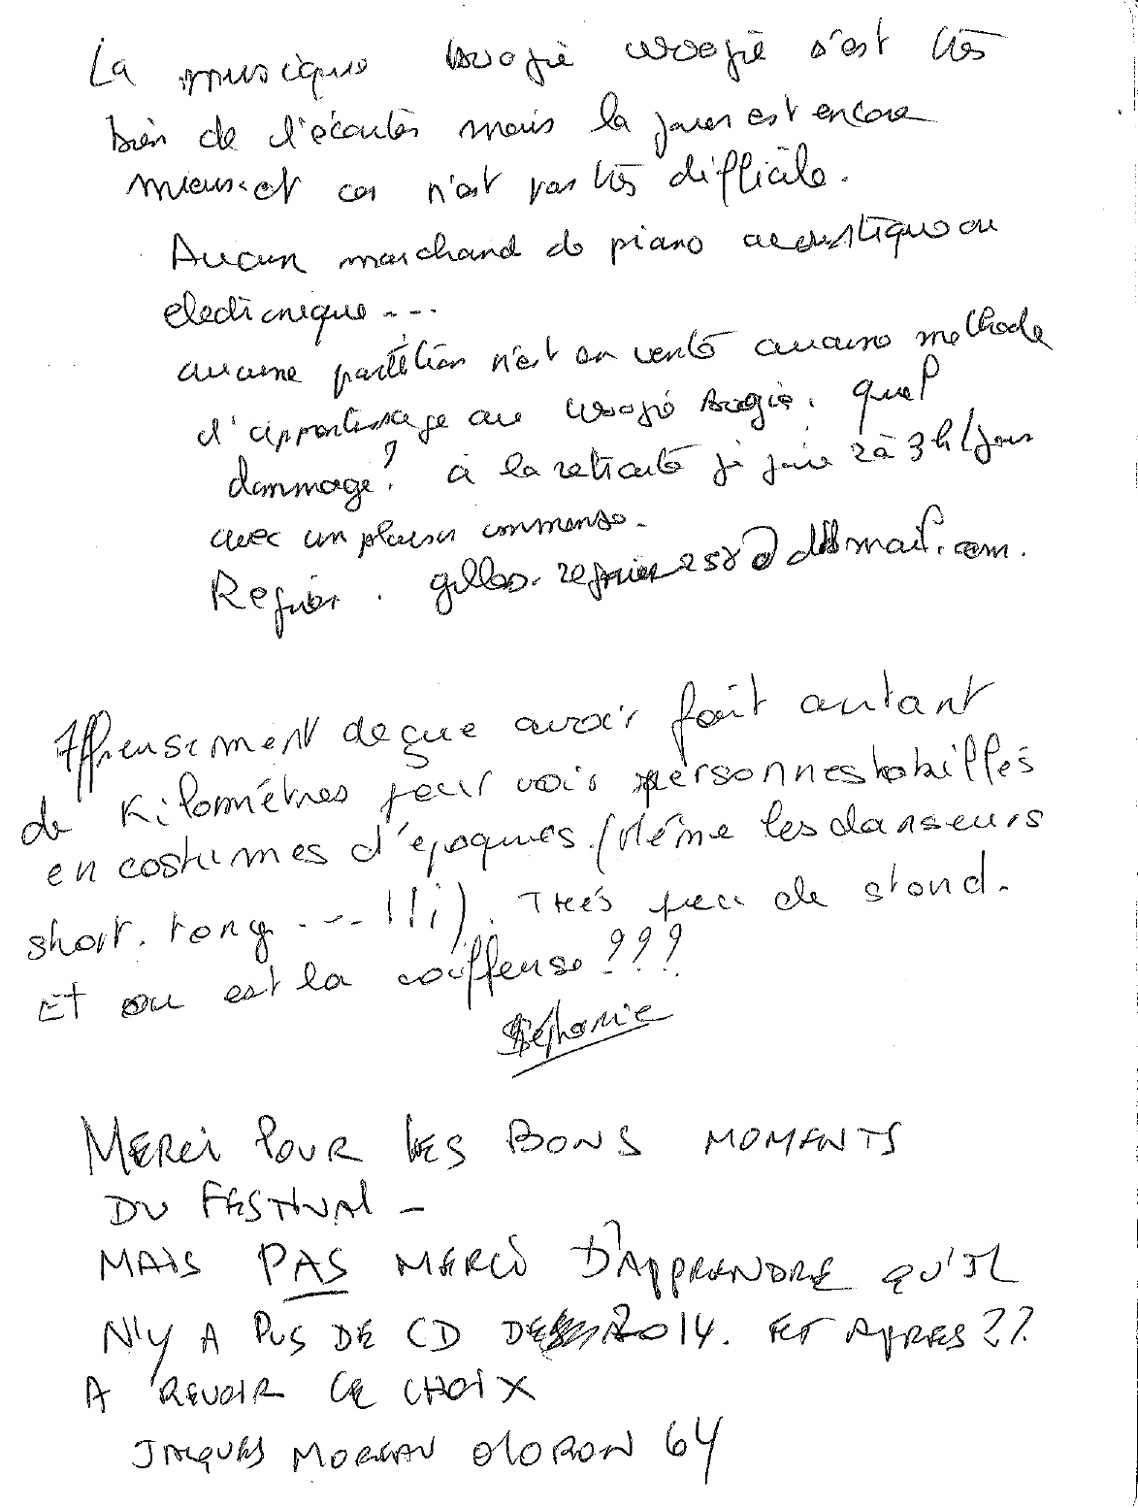 La musique boogie woogie s'est très
bien de l'écouter mais la jouer est encore
mieux et ce n'est pas très difficile.
Aucun marchand de piano acoustique ou
electronique ---
aucune partition n'est en vente aucune methode
d'apprentissage au woogie boogie. quel
dommage! à la retraite je joue 2 à 3h/jour
avec un plaisir immense.
Regnier. gilles.regnier258@ mail.com.
Affreusement deçue avoir fait autant
de Kilomètres pour voir personnes habillés
en costumes d'époques. (Même les danseurs
short. tong. --- !!!). Très peu de stand.
Et ou est la coiffeuse ???
Stéphanie
MERCI POUR LES BONS MOMENTS
DU FESTIVAL -
MAIS PAS MERCI D'APPRENDRE QU'IL
N'Y A PUS DE CD DE 2014. ET APRES ??
A REVOIR CE CHOIX
JACQUES MOREAU OLORON 64